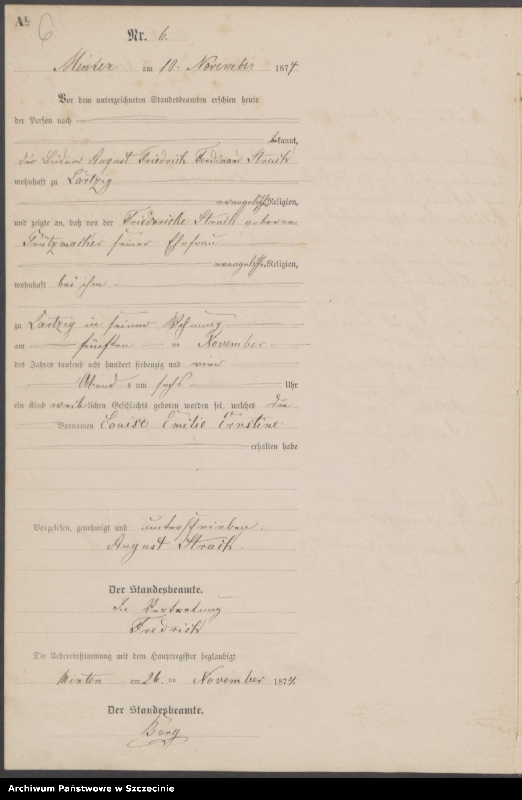 A b
6
Nr. 6.
Minten am 10. November 1874
Vor dem unterzeichneten Standesbeamten erschien heute
der Person nach
bekannt,
der Büdner August Friedrich Ferdinand Struck
wohnhaft zu Lärtzig
evangelischer Religion,
und zeigte an, daß von der Friedericke Struck geborene
Grützmacher seiner Ehefrau
evangelischer Religion,
wohnhaft bei ihm
zu Lärtzig in seiner Wohnung
am fünften ten November
des Jahres tausend acht hundert siebenzig und vier
Abend s um sechs Uhr
ein Kind weiblichen Geschlechts geboren worden sei, welches die
Vornamen Louise Emilie Ernstine
erhalten habe
Vorgelesen, genehmigt und unterschrieben.
August Struck.
Der Standesbeamte.
In Vertretung
Fredrich
Die Uebereinstimmung mit dem Hauptregister beglaubigt
Minten am 26. ten November 1874.
Der Standesbeamte.
Berg
Archiwum Państwowe w Szczecinie